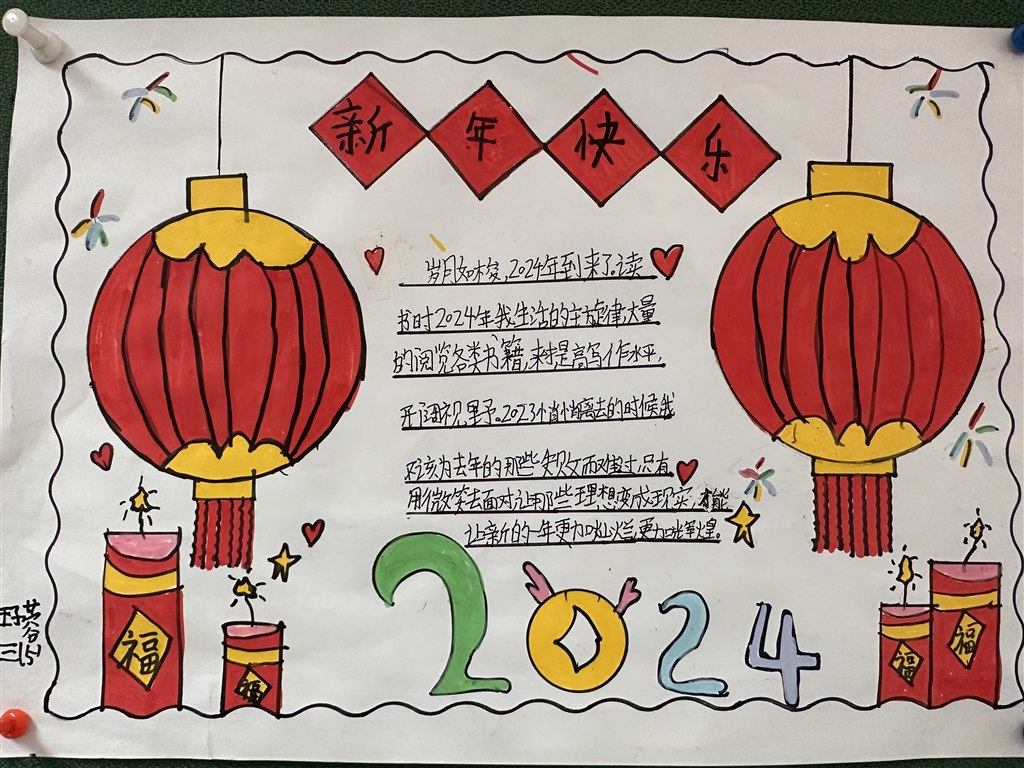 新年快乐
岁月如梭,2024年到来了。读
书时2024年我生活的主旋律,大量
的阅览各类书籍,来提高写作水平,
开阔视野。2023悄悄离去的时候我
不该为去年的那些失败而难过,只有
用微笑去面对,让那些理想变成现实,才能
让新的一年更加灿烂,更加辉煌。
2024
福
福
福
福
三(5)